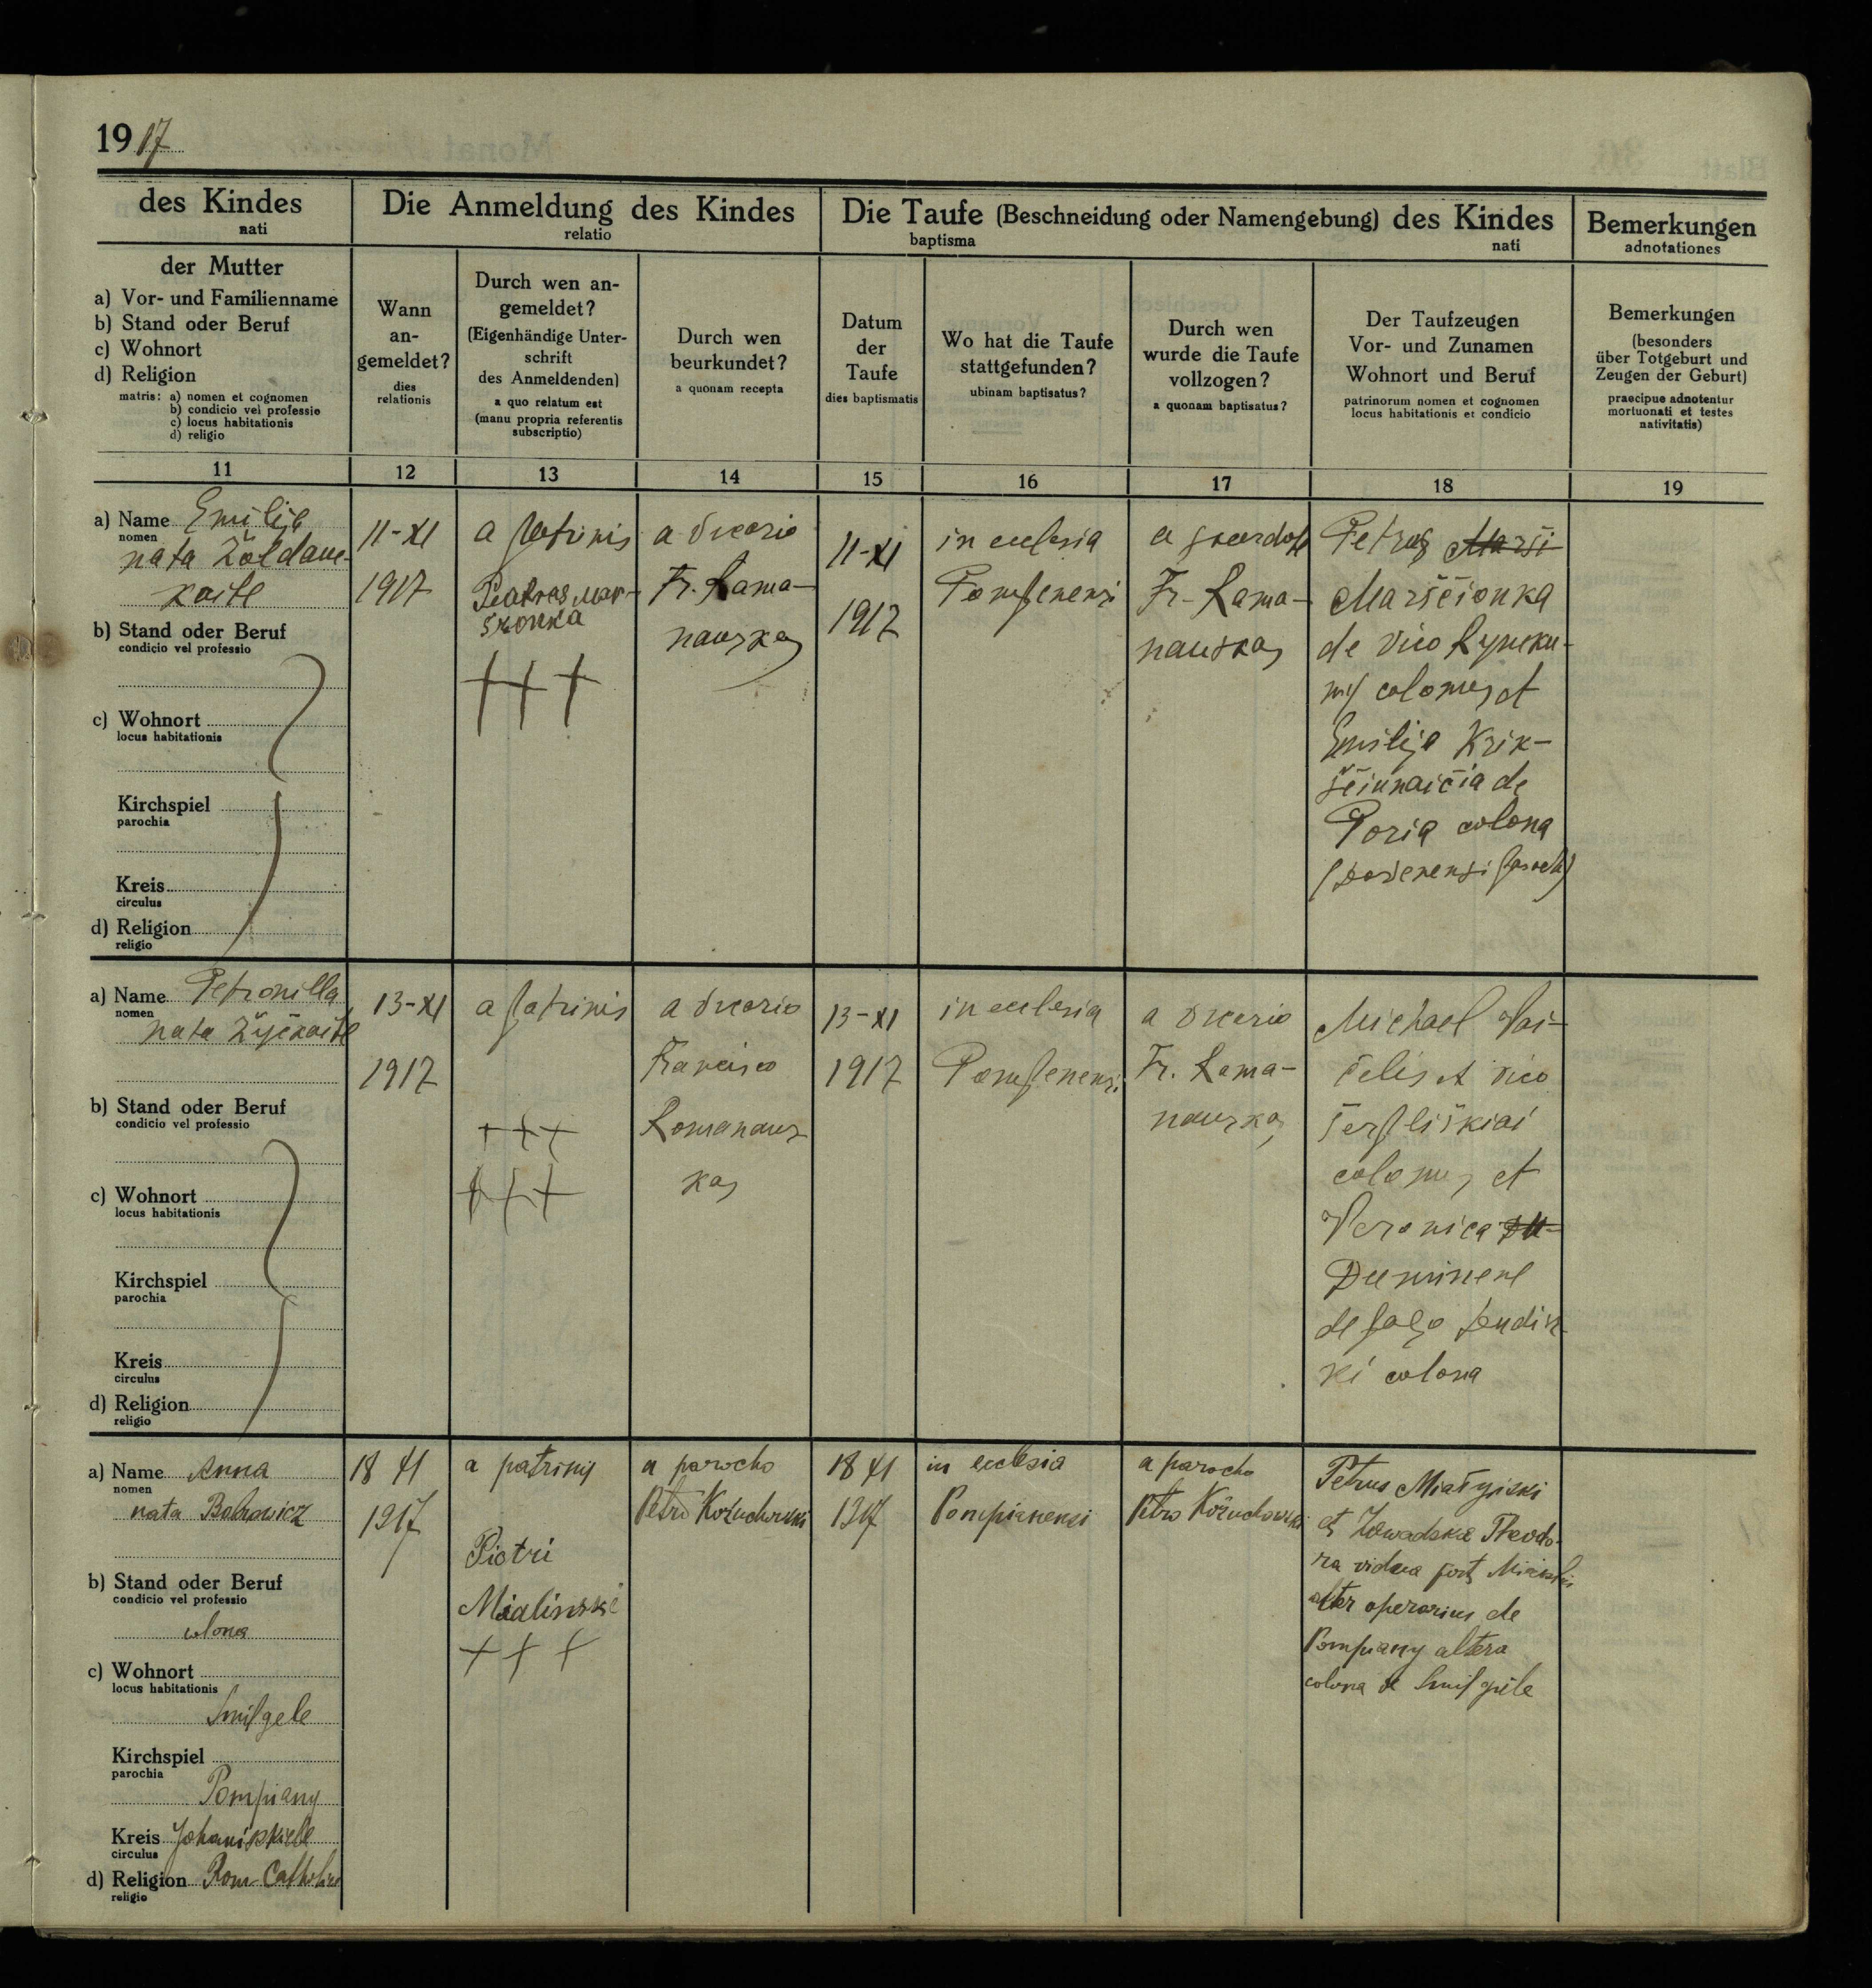 1917
des Kindes
nati
Die Anmeldung des Kindes
relatio
Die Taufe (Beschneidung oder Namengebung) des Kindes
baptisma nati
Bemerkungen
adnotationes
der Mutter
a) Vor- und Familienname
b) Stand oder Beruf
c) Wohnort
d) Religion
matris: a) nomen et cognomen
b) condicio vel professio
c) locus habitationis
d) religio
Wann
an-
gemeldet?
dies
relationis
Durch wen an-
gemeldet?
(Eigenhändige Unter-
schrift
des Anmeldenden)
a quo relatum est
(manu propria referentis
subscriptio)
Durch wen
beurkundet?
a quonam recepta
Datum
der
Taufe
dies baptismatis
Wo hat die Taufe
stattgefunden?
ubinam baptisatus?
Durch wen
wurde die Taufe
vollzogen?
a quonam baptisatus?
Der Taufzeugen
Vor- und Zunamen
Wohnort und Beruf
patrinorum nomen et cognomen
locus habitationis et condicio
Bemerkungen
(besonders
über Totgeburt und
Zeugen der Geburt)
praecipue adnotentur
mortuonati et testes
nativitatis)
11 12 13 14 15 16 17 18 19
a) Name Emilija
nomen
nata Žoldaue-
kaite
b) Stand oder Beruf
condicio vel professio
c) Wohnort
locus habitationis
Kirchspiel
parochia
Kreis
circulus
d) Religion
religio
11-XI
1917
a patrinis
Petras Mar-
+++
a vicario
Fr. Rama-
nauskas
11-XI
1917
in ecclesia
Pompenensi
a sacerdote
Fr. Rama-
nauskas
Petras Marsi
Marščionka
de vico
colonus et
Emilija Krik-
ščiunaičia de
Poria colona
a) Name Petronilla
nomen
nata Žyčkaite
b) Stand oder Beruf
condicio vel professio
c) Wohnort
locus habitationis
Kirchspiel
parochia
Kreis
circulus
d) Religion
religio
13-XI
1917
a patrinis
+++
+++
a vicario
Francisco
Romanaus
kas
13-XI
1917
in ecclesia
Pompenensi
a vicario
Fr. Rama-
nauskas
Michael Vai-
čelis et vico
colonus et
Veronica Du-
de pago
ki colona
a) Name Anna
nomen
nata Bobrowicz
b) Stand oder Beruf
condicio vel professio
colona
c) Wohnort
locus habitationis
Smilgele
Kirchspiel
parochia
Pompiany
Kreis Johanischkiele
circulus
d) Religion Rom Catholica
religio
18 XI
1917
a patrinis
Piotri
Mialinski
+++
a parocho
Petro Kożuchowski
18 XI
1917
in ecclesia
Pompianensi
a parocho
Petro Kożuchowski
Petrus Miałyński
et Zawadska Theodo-
ra vidua post
alter operarius de
Pompiany altera
colona de Smilgiele